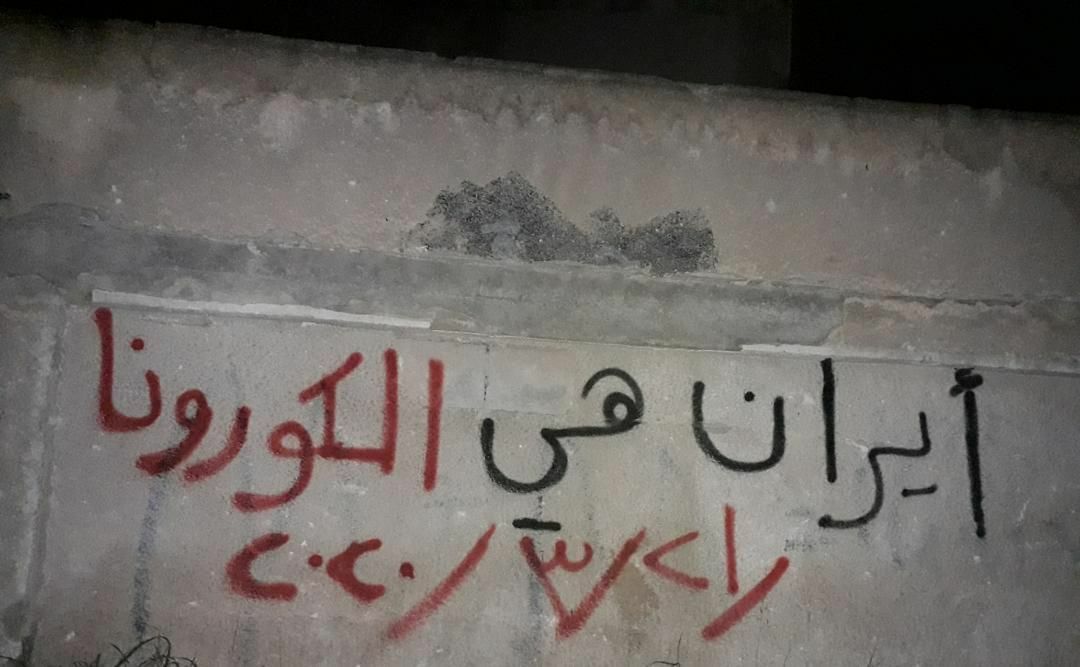 أيران هي الكورونا
/٢١/٣/٢٠٢٠